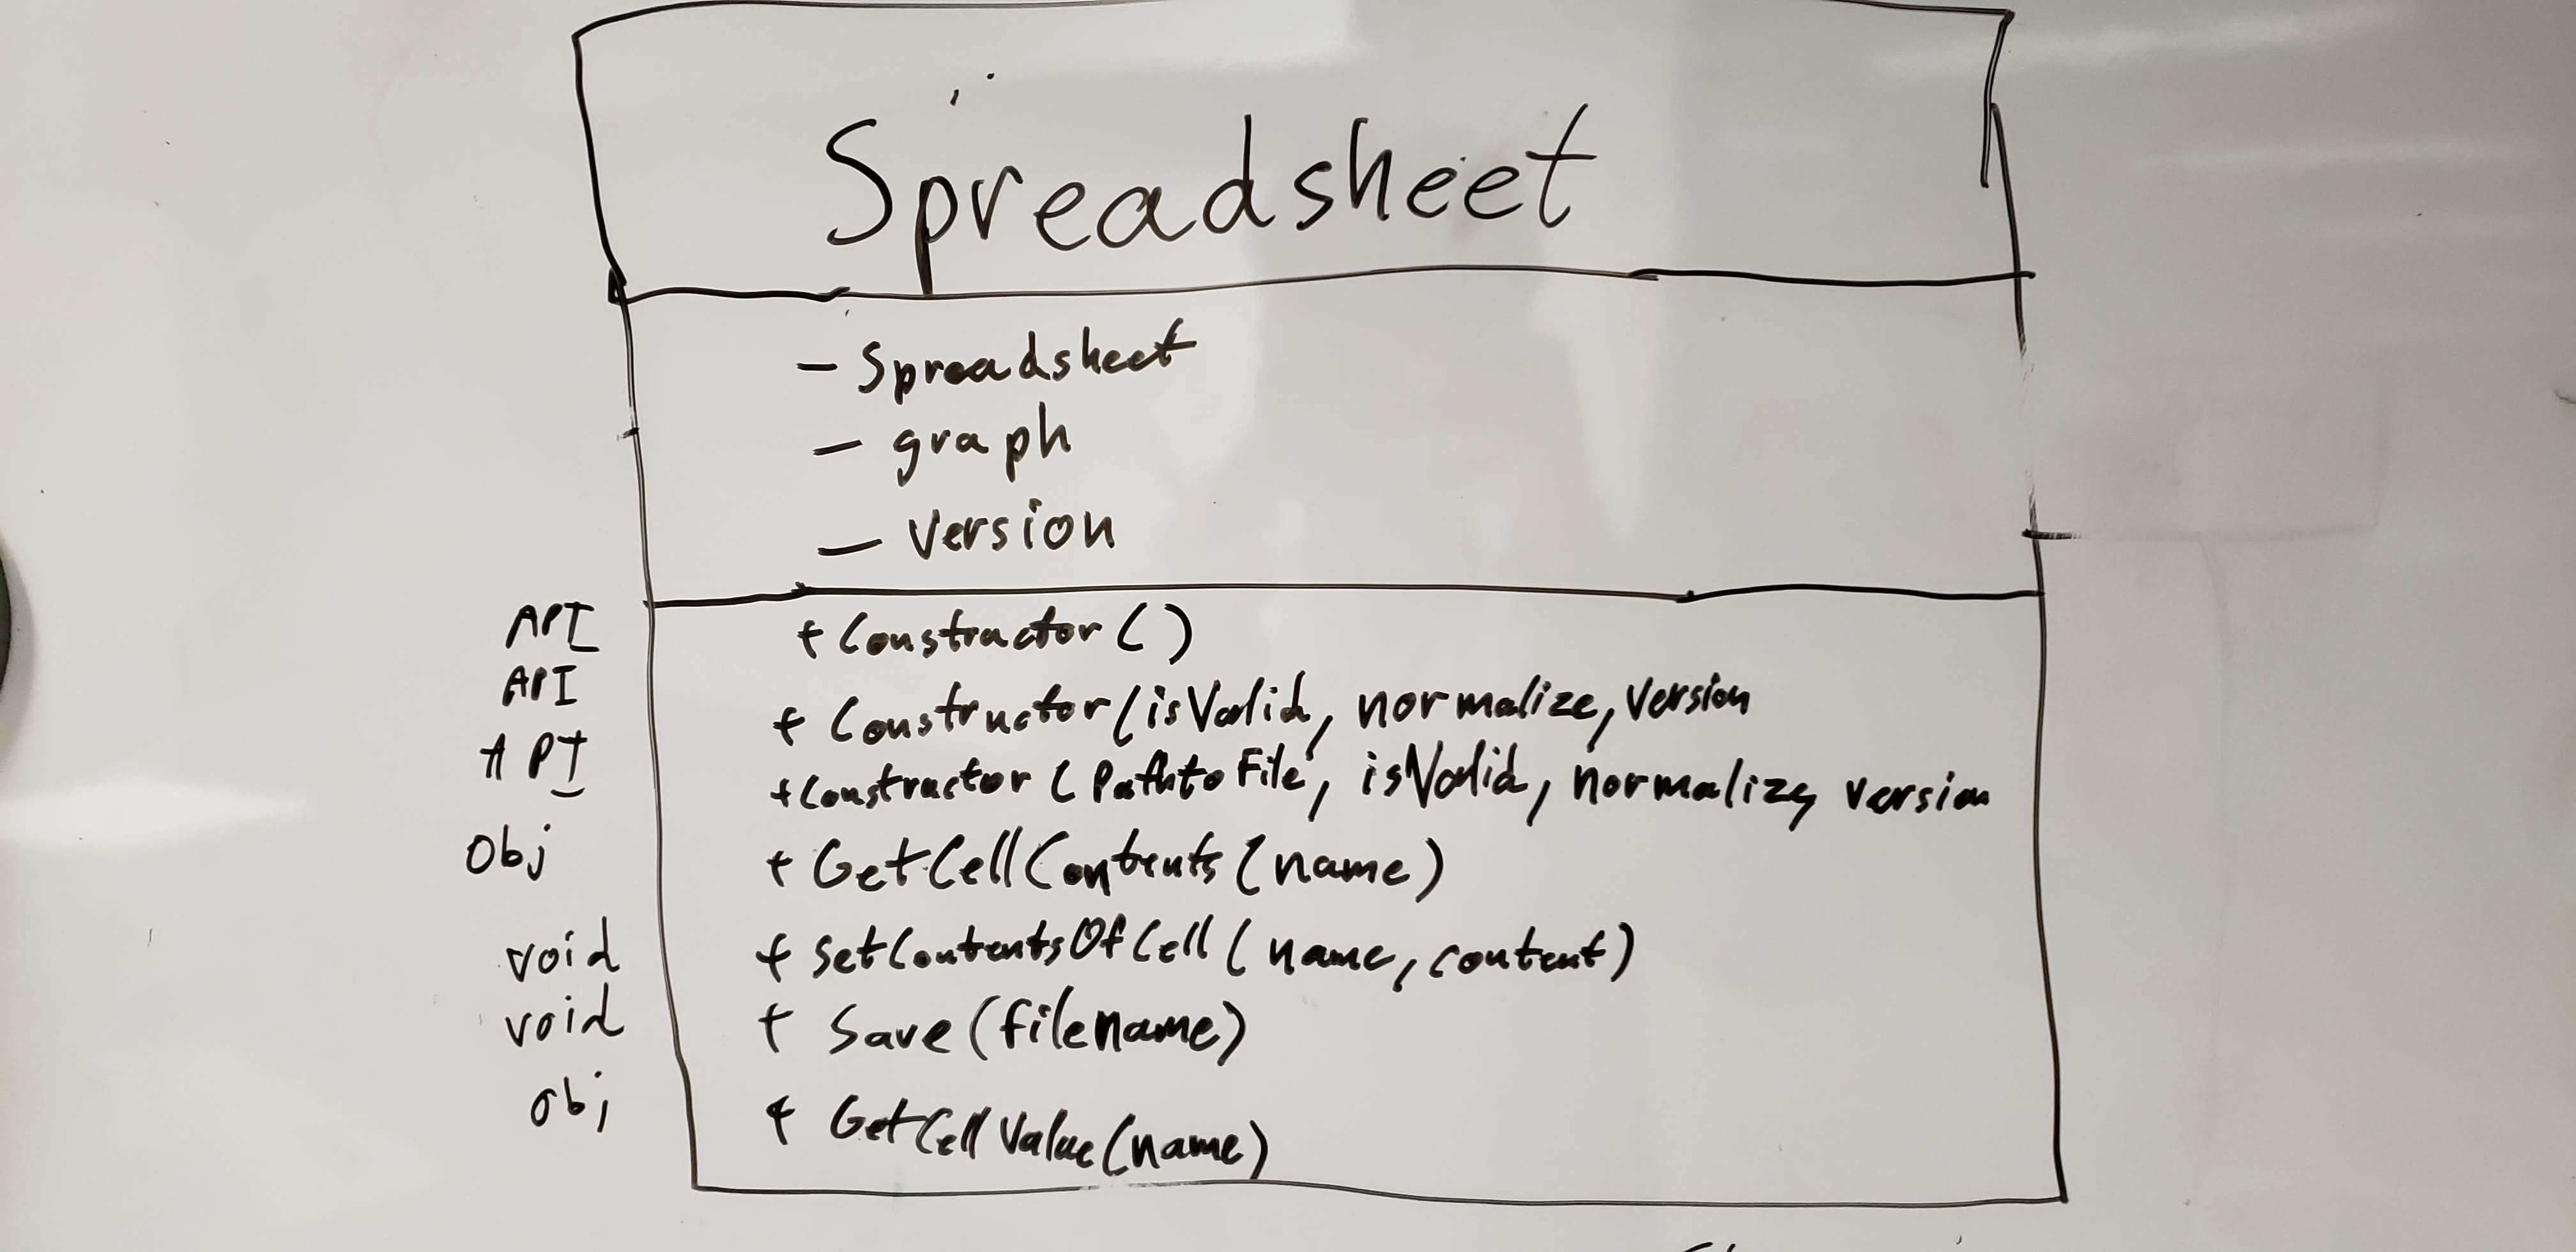 Spreadsheet
- Spreadsheet
- graph
- Version
API + Constructor ( )
API + Constructor (isValid, normalize, Version
API + Constructor ( Path to File, isValid, normalize, version
Obj + GetCellContents (name)
void + SetContentsOfCell ( name, content)
void + Save (filename)
obj + GetCellValue (name)